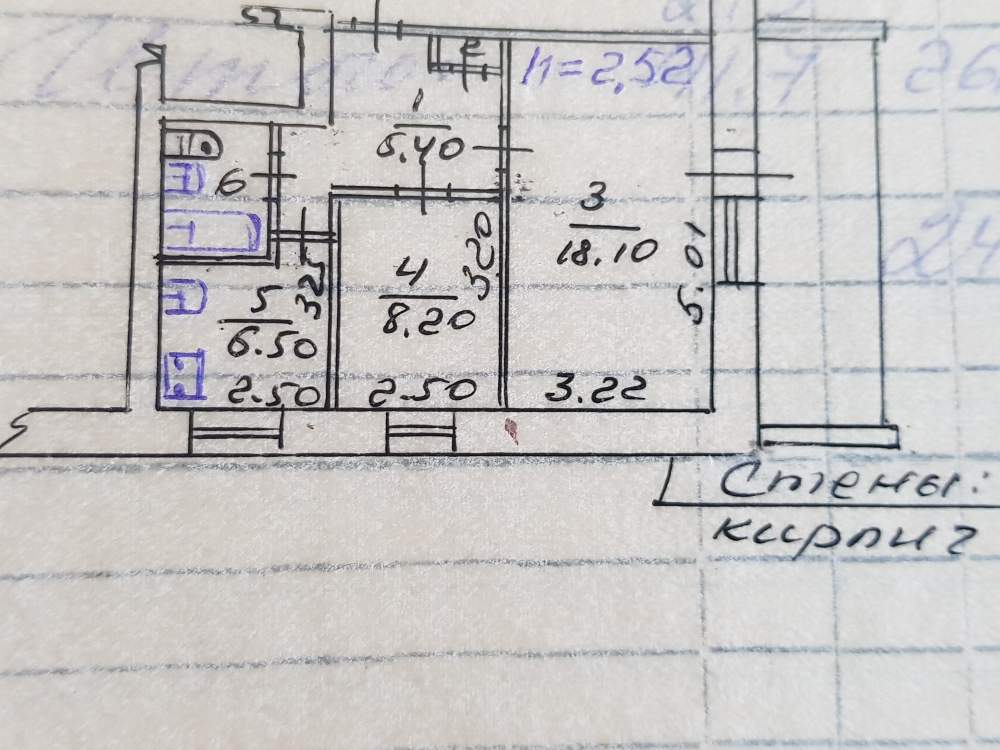 52
2
h=2,52
1
5.40
6
3
18.10
5.01
3.20
4
8.20
3.25
5
6.50
2.50
2.50
3.22
Стены:
кирпич